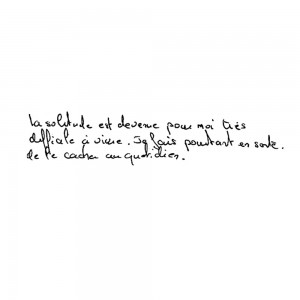 La solitude est devenue pour moi très
difficile à vivre. Je fais pourtant en sorte
de le cacher au quotidien.